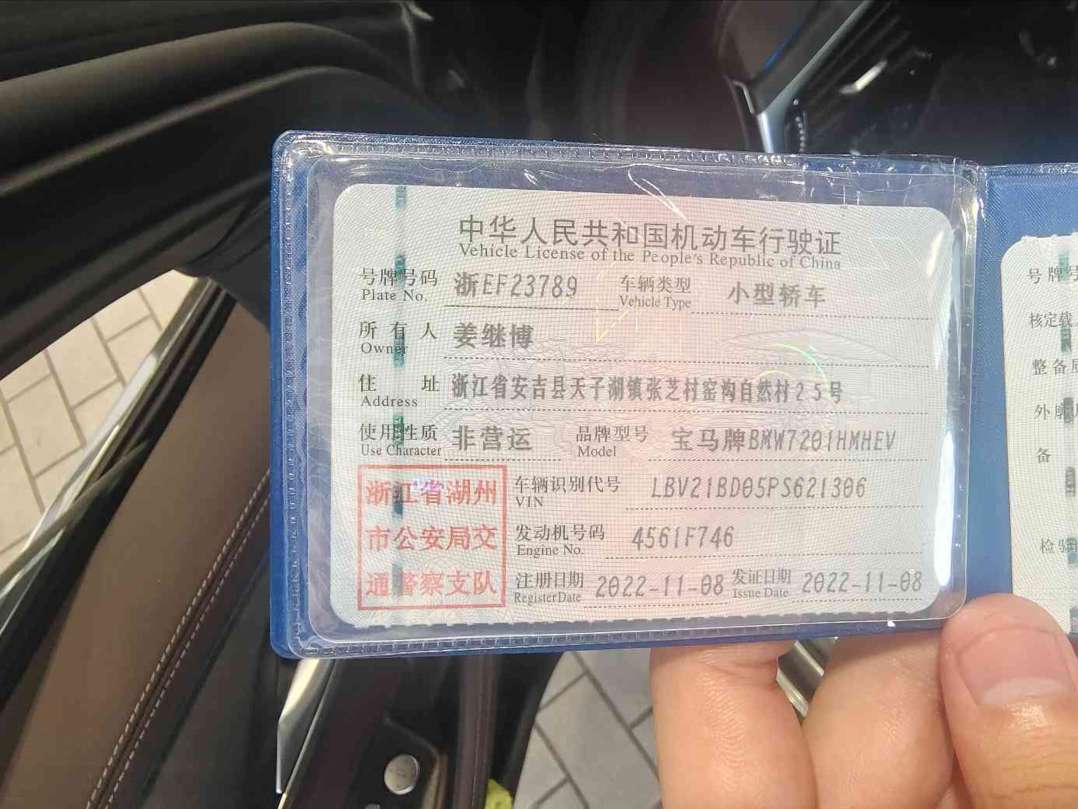 中华人民共和国机动车行驶证
Vehicle License of the People's Republic of China
号牌号码 浙EF23789 车辆类型 小型轿车
Plate No. Vehicle Type
所有人 姜继博
Owner
住址 浙江省安吉县天子湖镇张芝村窑沟自然村25号
Address
使用性质 非营运 品牌型号 宝马牌BMW7201HMHEV
Use Character Model
浙江省湖州
市公安局交
通警察支队
车辆识别代号 LBV21BD05PS621306
VIN
发动机号码 4561F746
Engine No.
注册日期 2022-11-08 发证日期 2022-11-08
Register Date Issue Date
号牌号
核定载
整备质
外廓
备
检验